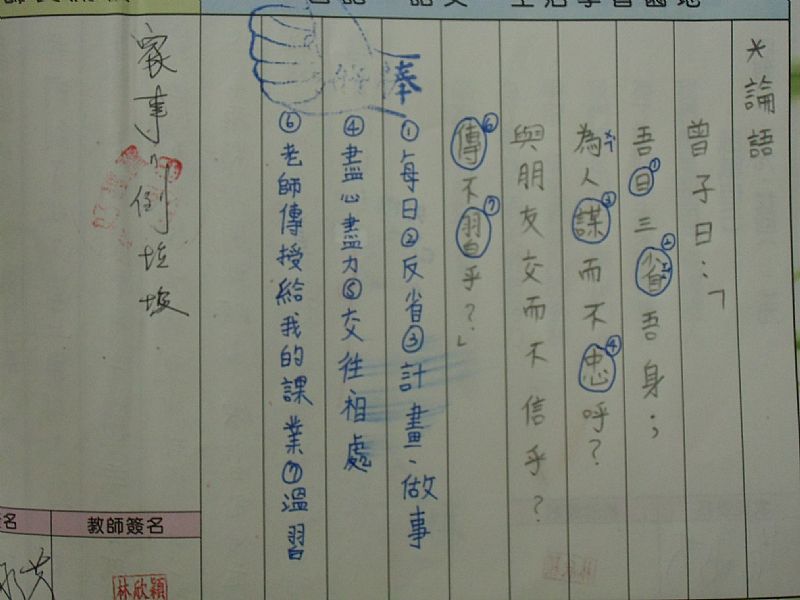 *論語
曾子曰:「
吾日①三省②吾身;
為ㄨㄟˋ人謀③而不忠④呼?
與朋友交而不信乎?
傳⑥不習⑦乎?」
棒
①每日②反省③計畫、做事
④盡心盡力⑤交往相處
⑥老師傳授給我的課業⑦溫習
家事:倒垃圾
教師簽名
林欣穎